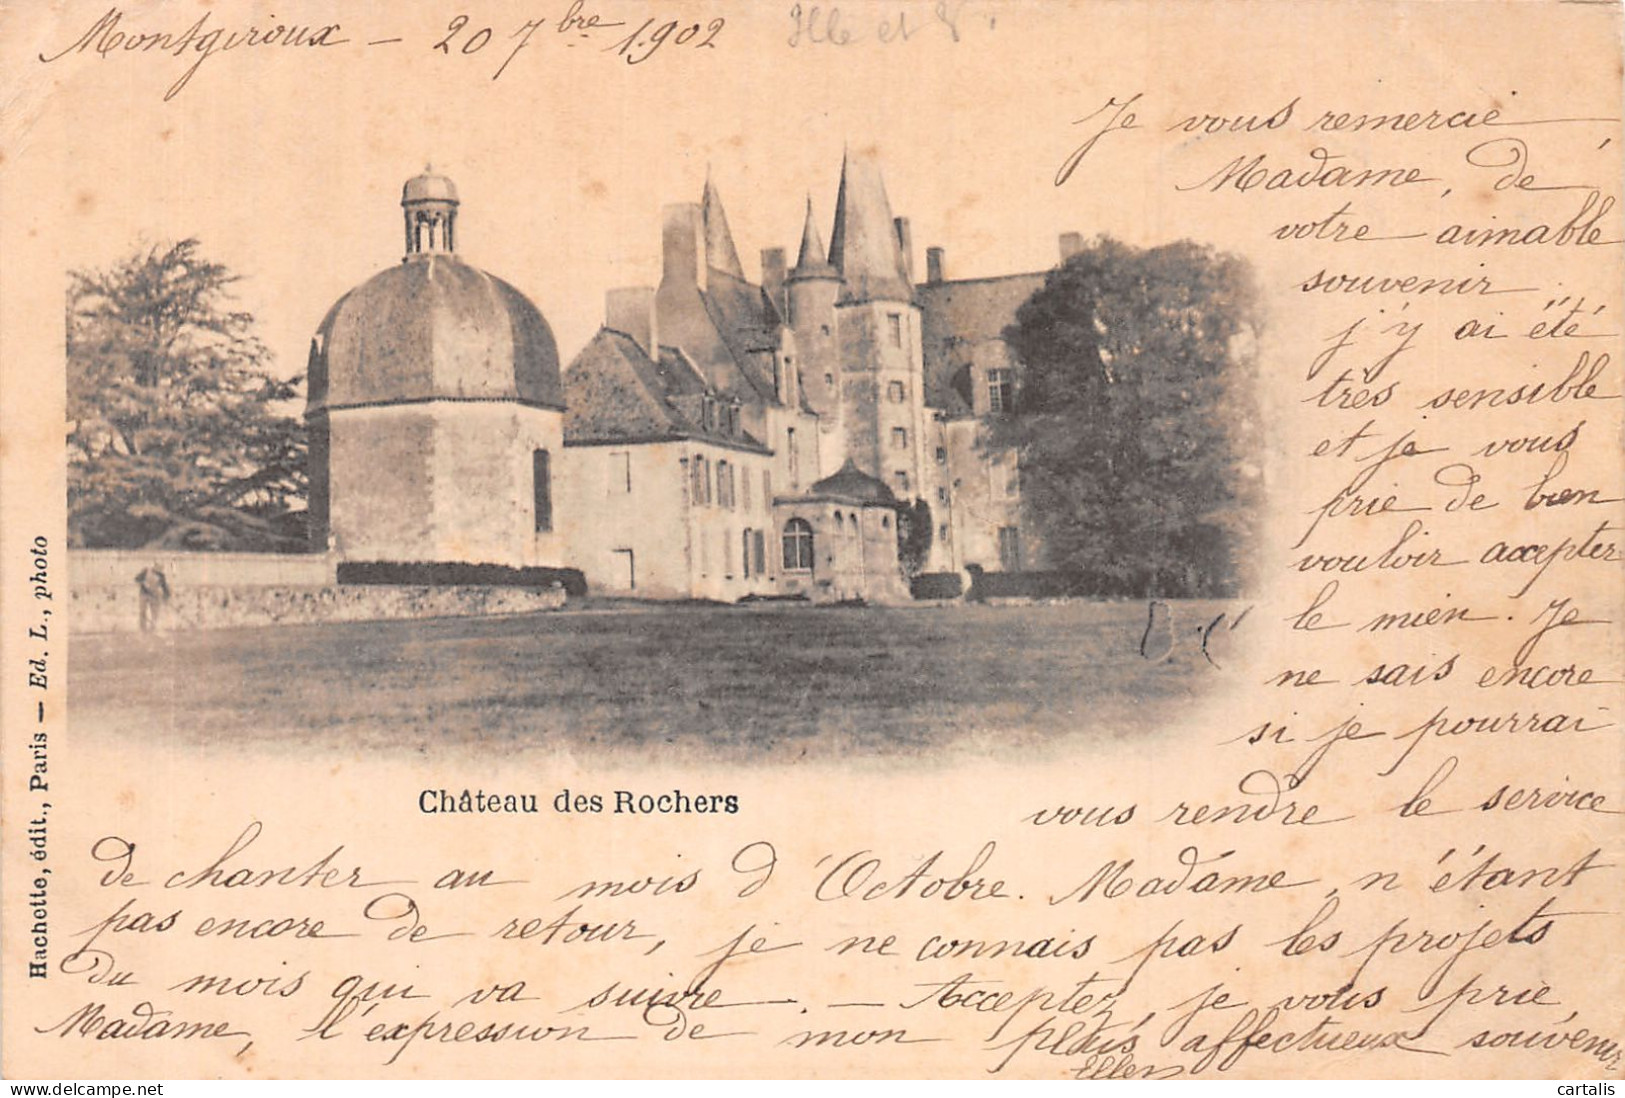 Montgiroux - 20 7bre 1902
Ille et V.
Je vous remercie,
Madame, de
votre aimable
souvenir.
j'y ai été
très sensible
et je vous
prie de bien
vouloir accepter
le mien. Je
ne sais encore
si je pourrai
vous rendre le service
de chanter au mois d'Octobre. Madame, n'étant
pas encore de retour, je ne connais pas les projets
du mois qui va suivre. - Acceptez, je vous prie,
Madame, l'expression de mon plus affectueux souvenir
Ellen
Château des Rochers
Hachette, édit., Paris — Ed. L., photo
cartalis